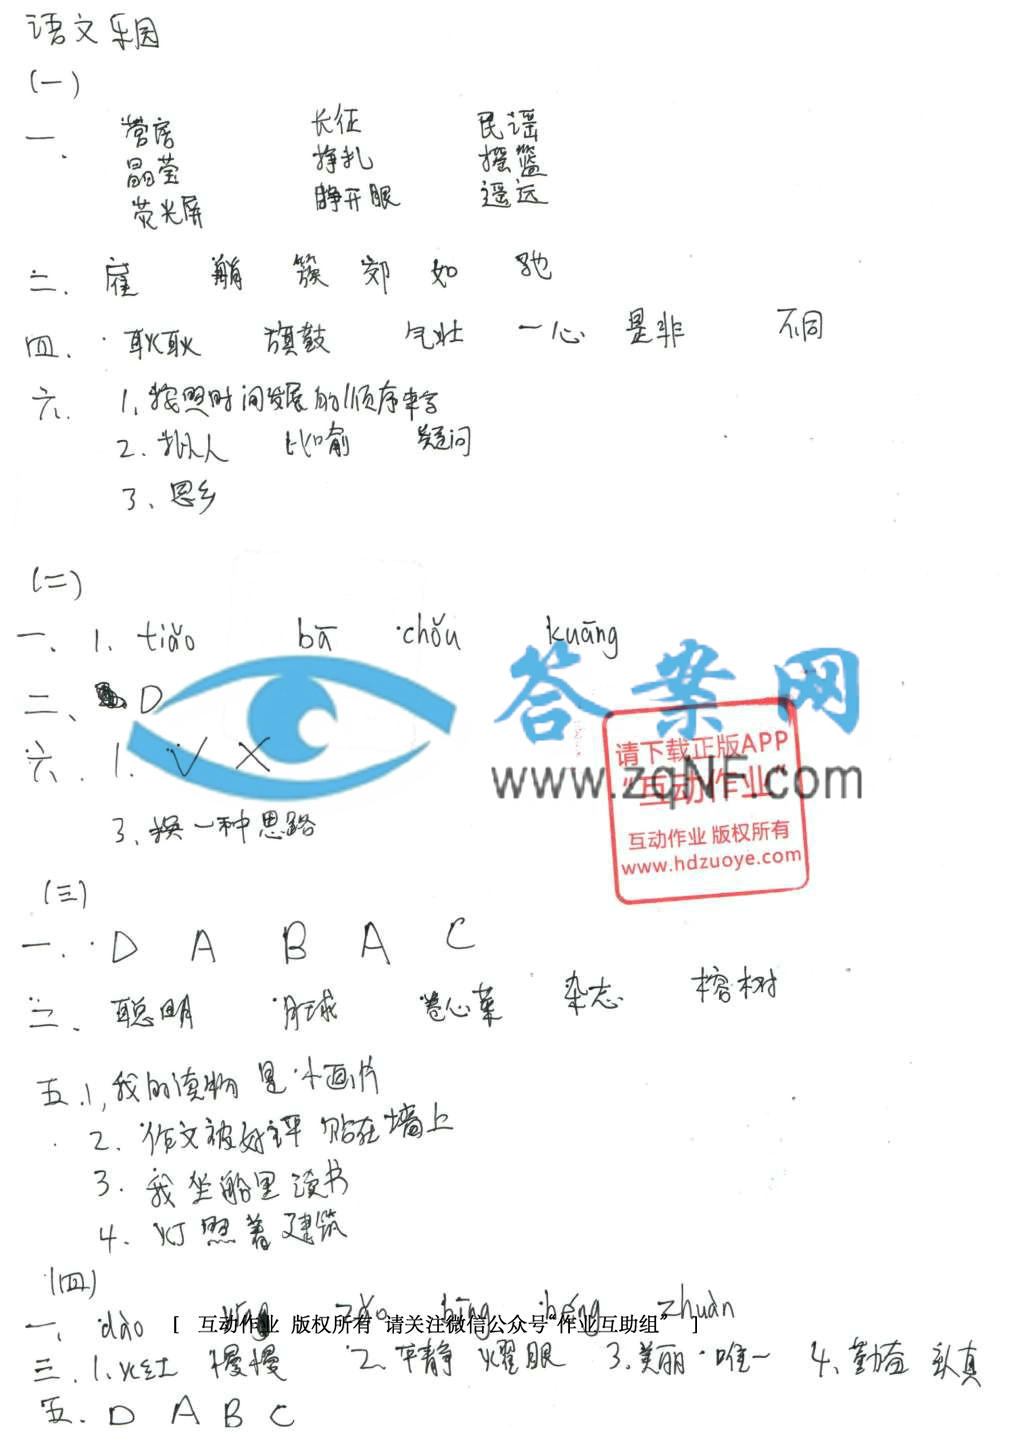 语文乐园
(一)
一、 营房 长征 民谣
晶莹 挣扎 摇篮
荧光屏 睁开眼 遥远
二、 雇 艄 簇 郊 如 驰
四、 耿耿 旗鼓 气壮 一心 是非 不同
六、 1、按照时间发展的顺序来写
2、拟人 比喻 疑问
3、思乡
(二)
一、 1. tiǎo bā chǒu kuāng
二、 D
答案网
六、 1. √ ×
请下载正版APP
“互动作业”
www.zqNF.com
3、换一种思路
互动作业 版权所有
www.hdzuoye.com
(三)
一、 D A B A C
二、 聪明 月球 卷心菜 杂志 榕树
五、1、我的读物是小画片
2. 作文被好评 贴在墙上
3. 我坐船里读书
4. 灯照着建筑
(四)
一、 dào zǎo bīng béng zhuàn
[ 互动作业 版权所有 请关注微信公众号“作业互助组” ]
三、1、火红 慢慢 2、平静 耀眼 3、美丽 唯一 4、勤奋 认真
五、 D A B C